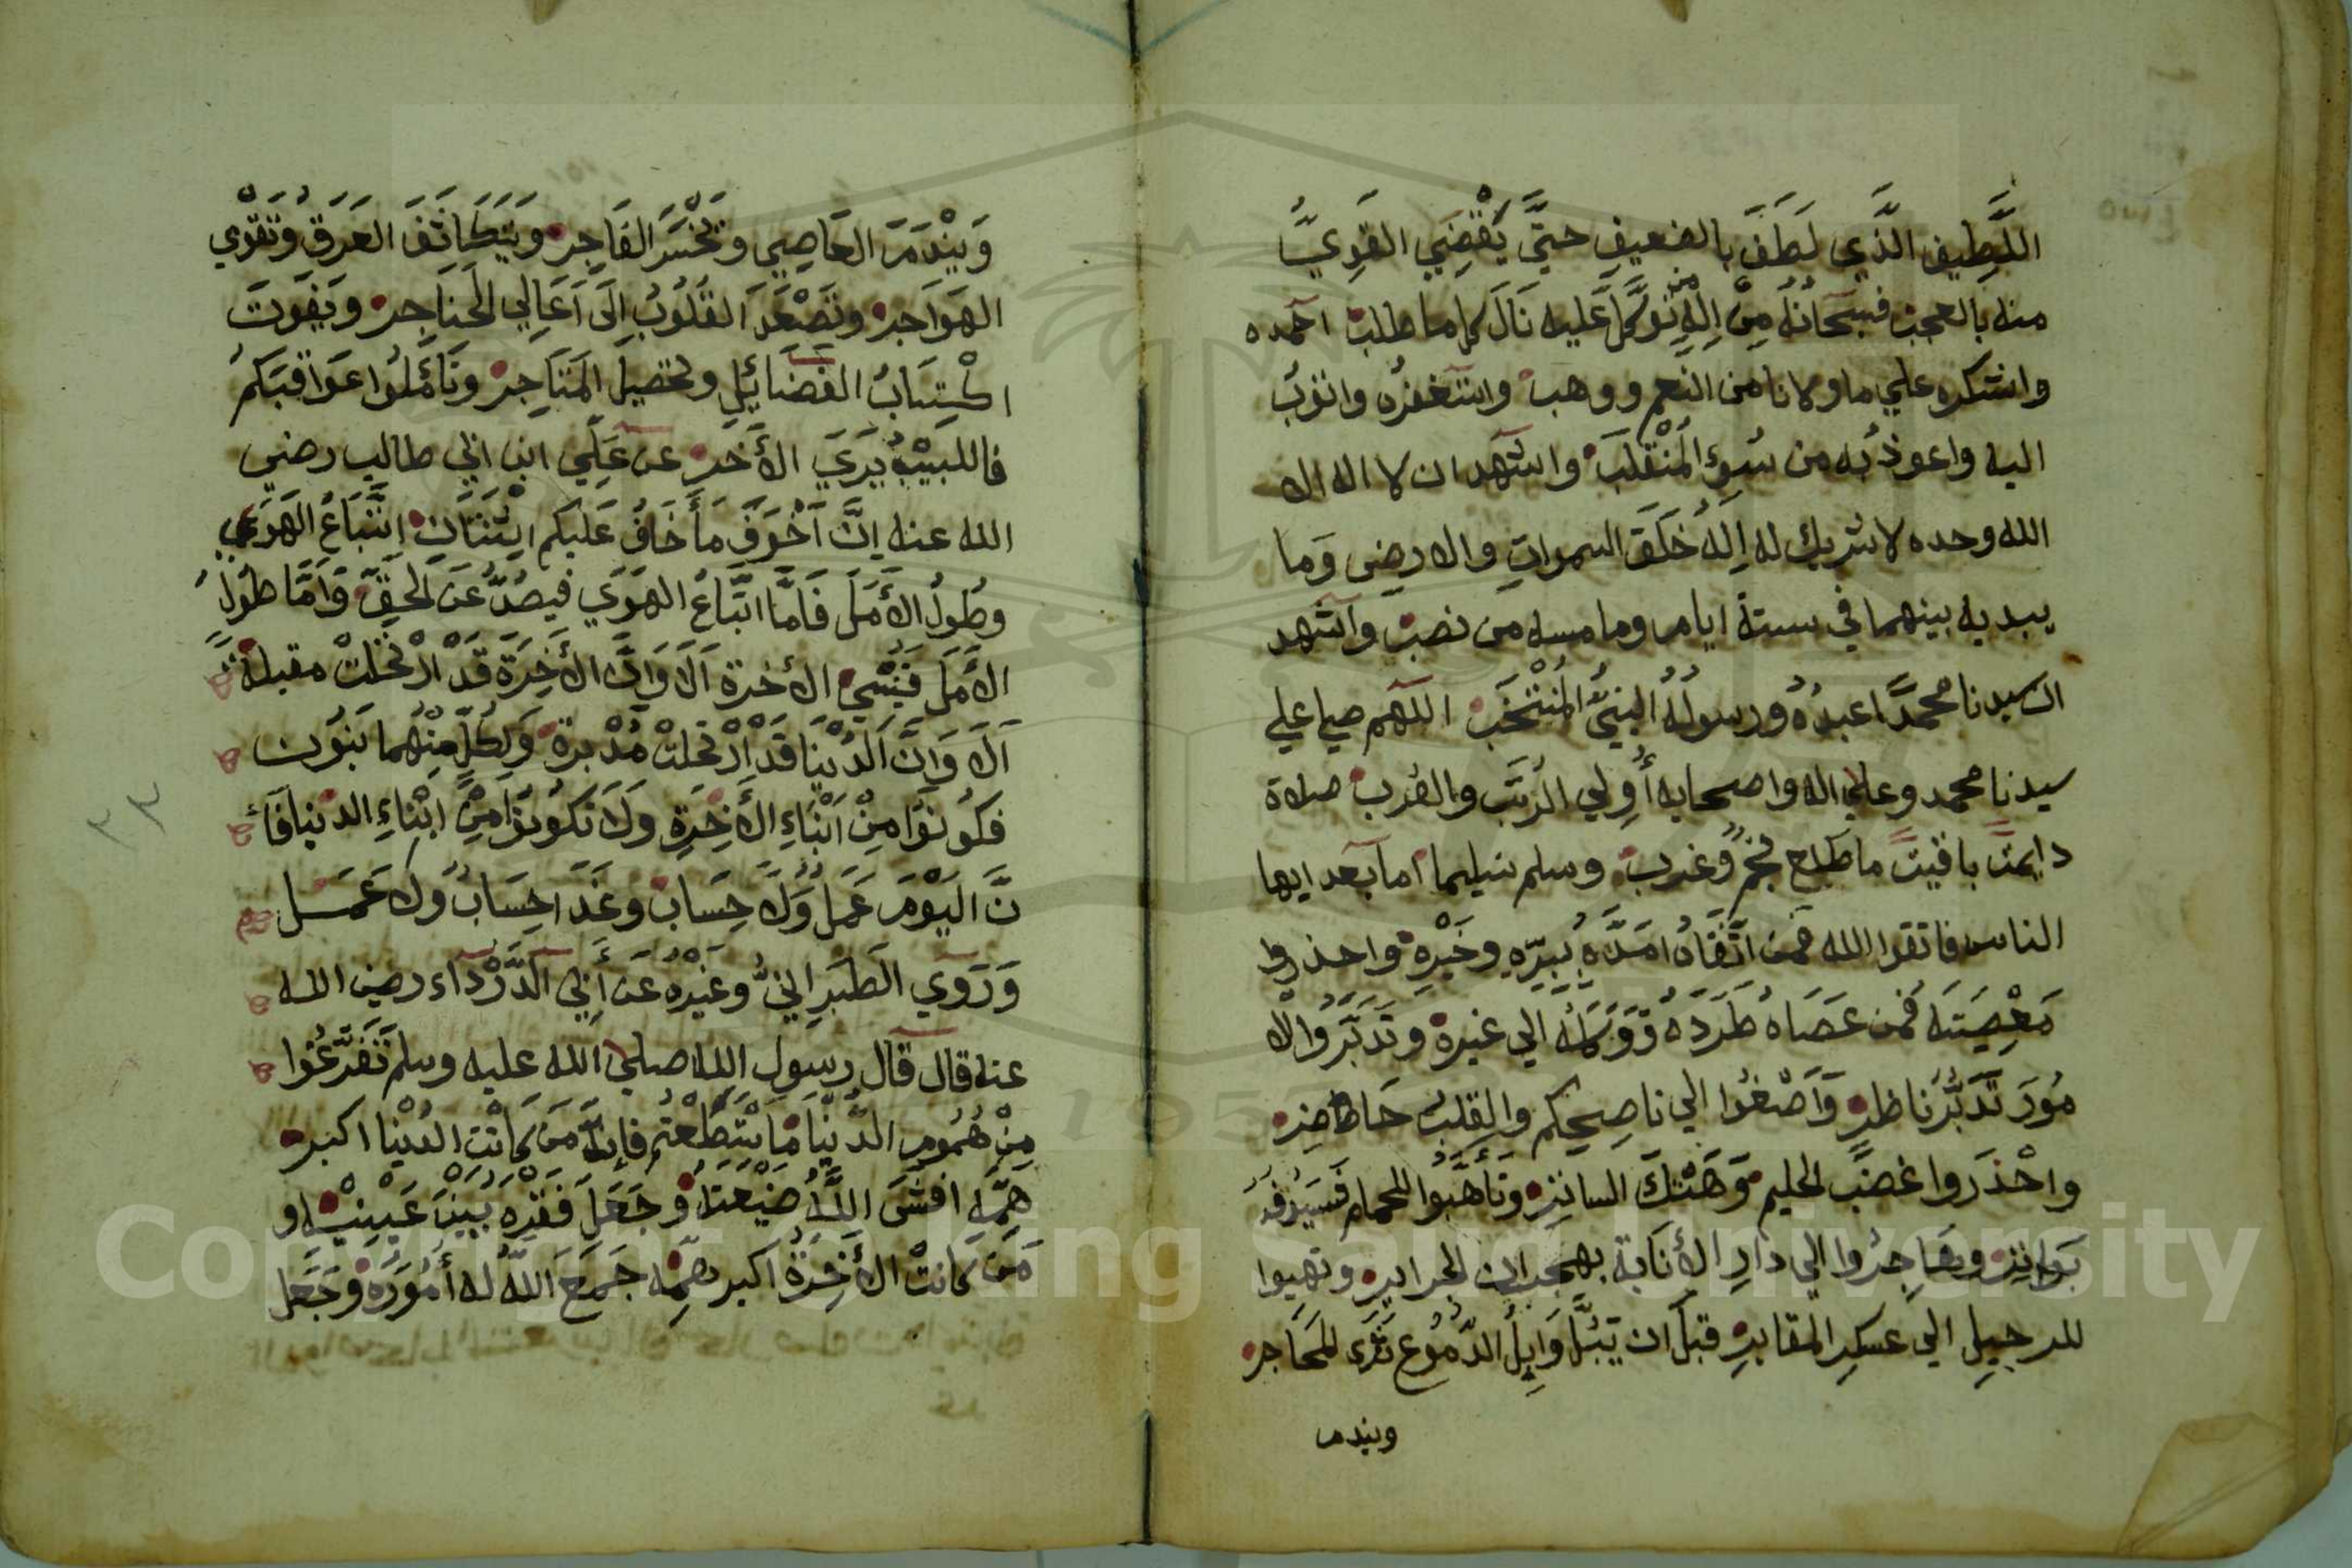 اللَّطِيفِ الَّذِي لَطَفَ بالضعيفِ حَتَّى يَقْضِيَ القَوِيُّ
منه بالعجب فسبحانُهُ مِنْ اِلهٍ من تَوَكَّلَ عَليه نَالَ كلما طلب احمده
واشكره علي ما اولانا من النعم ووهب واستغفرُه واتوبُ
اليه واعوذُ به من سُوءِ المُنْقَلَب واشهد ان لا اله الا
الله وحده لا شريك له اِلهُ خَلَقَ السمواتِ والارضِ وَما
يبديه بينهما في ستة ايام وما مسه من نصب واشهد
ان سيدنا محمدًا عبدُهُ ورسولُهُ النبيُّ المُنْتَخَب اللهم صلي علي
سيدنا محمد وعلي اله واصحابه أُولي الرُتَب والقُرب صلاة
دايمتً باقيتً ما طلع نجمٌ وغرب وسلم تسليما اما بعد ايها
الناس فاتقوا الله فمن اتَّقَاهُ امَدَّهُ بِبِرِّهِ وخَيْرِه واحذروا
مَعْصِيَتَه فمن عَصَاهُ طَرَدَهُ وَوَكَلَهُ الي غيره وتَدَبَّرُوا الا
مُورَ تَدَبُّرَ نَاظر وَاَصْغُوا الي ناصِحِكم والقلبُ حَاضر
واحْذَروا غضَبَ الحليم وَهَتْكَ الساتِرِ وتَأهَّبُوا للحمام فَسَيُوفُه
بَوَاتِر وهَاجِرُوا الي دَارِ الأنَابة بهجران الجراير وتهيوا
للرحيل الي عسكر المقابر قبل ان يَبُلَّ وَابِلُ الدُّمُوع ثَرَى المَحَاجر
ويندم
وَيَنْدَمَ العَاصِي وتَخْسَر الفَاجِر ويَتَكَاثَفَ العَرَقُ وتَقوْي
الهَوَاجر وتَصْعَدَ القُلُوبُ اِلَى اَعَالِي الحَناَجِر ويَفُوتَ
اكْتِسَابُ الفَضَايُلِ وتحصيل المَتَاجِر وتَأَمَّلُوا عَوَاقبَكمُ
فاللبيْبُ يَرَيَ الأَخَر عن عَلِيّ ابن ابي طالب رضي
الله عنه اِنَّ اَخْوَفَ مَا أَخَافُ عَليكم اثْنَتَانِ اتِّبَاعُ الهَوَي
وطُولُ الأَمَل فَامَّا اتِّبَاعُ الهَوَي فيصُدُّ عَن الحَقّ وَاَمَّا طُولُ
الأَمَل فَيُنْسِي الأخرة اَلَا وَاِنَّ الأَخِرَة قَدْ ارْتَحَلتْ مقبلة
اَلَا وَاِنَّ الدُنْيَا قَدْ اِرْتحلتْ مُدْبرة وَلِكلٍّ مِنْهُما بَنُون
فكُونُوا مِنْ اَبْنَاءِ الأَخِرَةِ ولاَ تَكُونُوا مِنْ ابْناءِ الدنيا فَاِ
نَّ اليَوْمَ عَمَلٌ وَلاَ حِسَاب وغَدًا حِسَابٌ ولا عَمَل
وَرَوَي الطَبَرانيُّ وغَيْرُه عَن أبِي الدَّرْدَآء رضي الله
عنه قال قال رسول الله صلي الله عليه وسلم تَفَرَّغُوا
مِنْ هُمُوم الدُّنْيَا مَا اسْتَطَعْتُم فانَّهُ مَن كانَت الدُنْيا اكبر
هَمِّهِ افشَى اللَّهُ ضَيْعَتَهُ وجَعَلَ فَقْرَه بَيْنَ عَيْنَيْه و
مَن كانتْ الأخِرَةُ اكبر هَمِّه جَمَعَ اللَّهُ له أُمُورَهُ وجَعَل
٣٣
Copyright © King Saud University
195